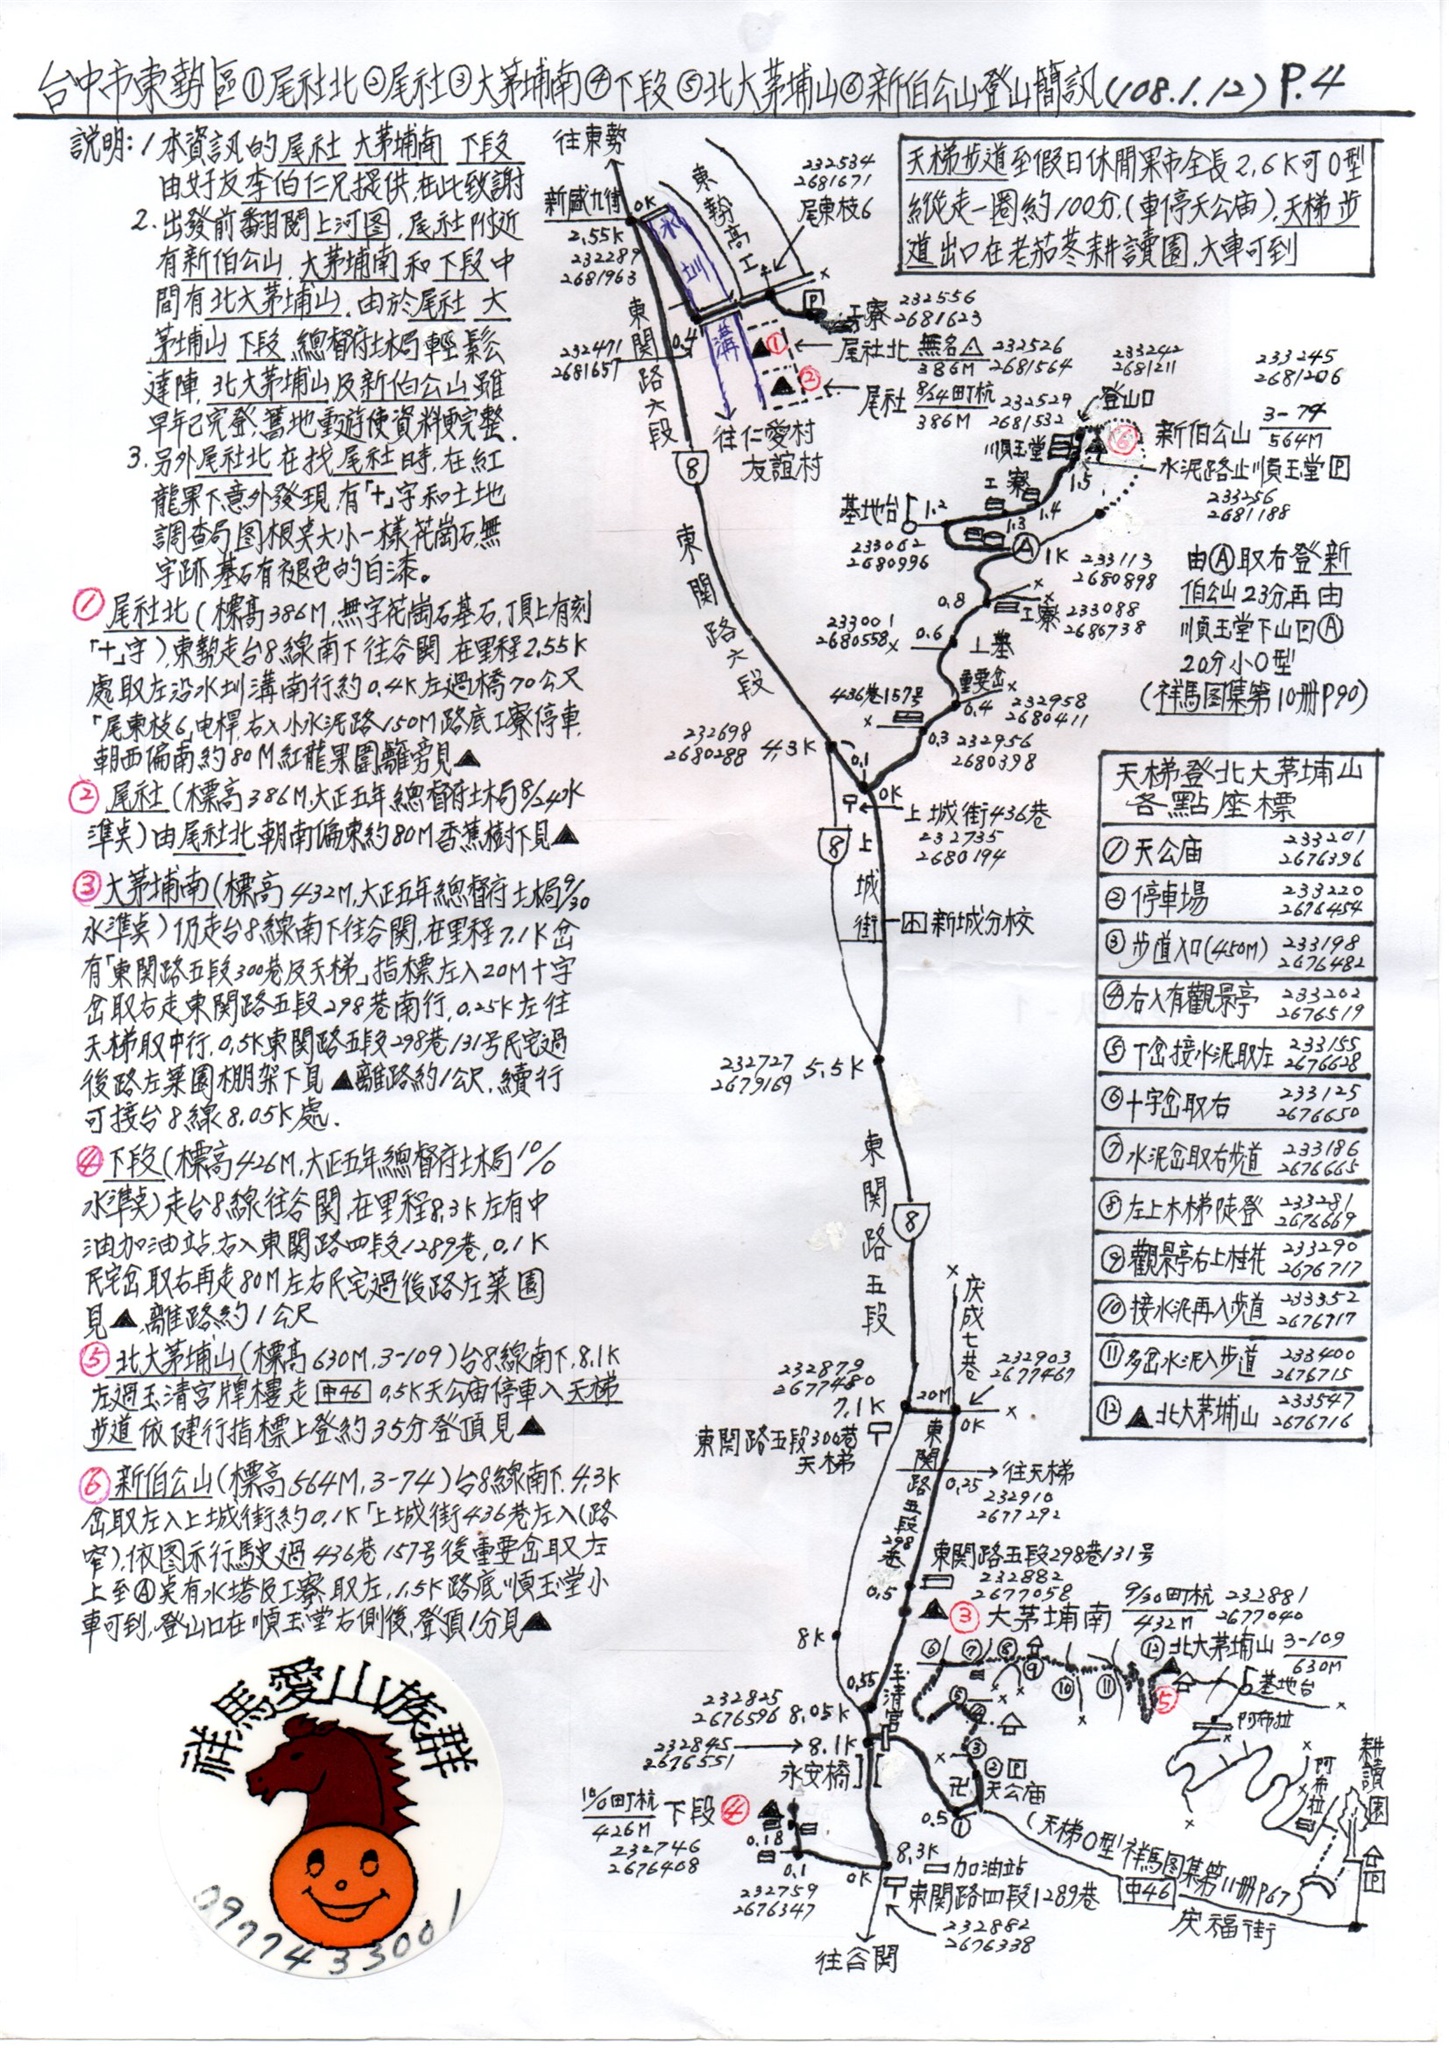 台中市東勢區①尾社北②尾社③大茅埔南④下段⑤北大茅埔山⑥新伯公山登山簡訊(108.1.12) P.4
說明:1.本資訊的尾社 大茅埔南 下段
由好友李伯仁兄提供,在此致謝
2.出發前翻閱上河图,尾社附近
有新伯公山,大茅埔南和下段中
間有北大茅埔山.由於尾社 大
茅埔山 下段 總督府土局輕鬆
達陣,北大茅埔山及新伯公山雖
早年已完登,舊地重遊使資料更完整.
3.另外尾社北在找尾社時,在紅
龍果下意外發現,有「十」字和土地
調查局图根点大小一樣花崗石,無
字跡.基石有褪色的白漆。
①尾社北(標高386M,無字花崗石基石,頂上有刻
「十」字),東勢走台8線南下往谷関,在里程2.55K
處取左沿水圳溝南行約0.4K左過橋70公尺
「尾東枝6」电桿,右入小水泥路150M路底工寮停車,
朝西偏南約80M紅龍果園籬旁見▲
②尾社(標高386M,大正五年總督府土局8/24水
準点)由尾社北朝南偏東約80M香蕉樹下見▲
③大茅埔南(標高432M,大正五年總督府土局9/30
水準点)仍走台8線南下往谷関,在里程7.1K岔
有「東関路五段300巷及天梯」指標左入20M十字
岔取右走東関路五段298巷南行,0.25K左往
天梯取中行,0.5K東関路五段298巷131号民宅過
後路左菜園棚架下見▲離路約1公尺,續行
可接台8線8.05K處.
④下段(標高426M,大正五年總督府土局10/0
水準点)走台8線往谷関,在里程8.3K左有中
油加油站,右入東関路四段1289巷,0.1K
民宅岔取右再走80M左右民宅過後路左菜園
見▲,離路約1公尺
⑤北大茅埔山(標高630M,3-109)台8線南下,8.1K
左過玉清宮牌樓走 中46 0.5K天公庙停車入天梯
步道依健行指標上登約35分登頂見▲
⑥新伯公山(標高564M,3-74)台8線南下.4.3K
岔取左入上城街約0.1K「上城街436巷左入(路
窄),依图示行駛過436巷157号後重要岔取左
上至Ⓐ点有水塔及工寮取左,1.5K路底順玉堂小
車可到,登山口在順玉堂右側後,登頂1分見▲
祥馬愛山族群
0977433001
天梯步道至假日休閒果市全長2.6K可O型
縱走一圈約100分,(車停天公庙),天梯步
道出口在老茄苳耕讀園,大車可到
往東勢
新盛九街
0K
2.55K
232289
2681963
水圳溝
東勢高工
232534
2681671
尾東枝6
P
工寮 232556
2681623
0.4
232471
2681657
東関路六段
①
尾社北 無名△ 232526
386M 2681564
②
尾社 8/24町杭 232529
386M 2681532
往仁愛村
友誼村
8
東関路六段
233242
2681211
登山口
233245
2681206
⑥
新伯公山 3-74
564M
水泥路止順玉堂 P
233256
2681188
順玉堂
工寮
1.5
1.4
1.3
1.2
基地台
233062
2680996
Ⓐ 1K 233113
2680898
由Ⓐ取右登新
伯公山23分再由
順玉堂下山回Ⓐ
20分小O型
(祥馬图集第10册P90)
0.8
工寮 233088
2686738
233001
2680558
0.6
墓
重要岔
0.4 232958
2680411
436巷157号
0.3 232956
2680398
232698
2680288 4.3K
0.1
0K
上城街436巷
232735
2680194
8
上城街
新城分校
232727
2679169 5.5K
東関路五段
8
慶成七巷
232879
2677480
7.1K
20M
232903
2677467
0K
東関路五段300巷
天梯
東関路五段298巷
往天梯
0.25 232910
2677292
東関路五段298巷131号
0.5 232882
2677058
③ 大茅埔南 9/30町杭 232881
432M 2677040
8K
0.55
玉清宮
232825
2676596 8.05K
232845
2676551 8.1K
永安橋
⑥ ⑦ ⑧ ⑨ ⑩ ⑪
⑫ 北大茅埔山 3-109
630M
⑤
基地台
阿布拉
阿布拉
耕讀園
⑤ ④
③
② P
天公庙
卍
0.5 ①
(天梯O型祥馬图集第11册P67)
中46
慶福街
10/0町杭 下段 ④
426M
232746
2676408
0.18
0.1
232759
2676347
0K
8.3K
加油站
東関路四段1289巷
232882
2676338
往谷関
天梯登北大茅埔山
各點座標
①天公庙 233201
2676396
②停車場 233220
2676454
③步道入口(450M) 233198
2676482
④右入有觀景亭 233202
2676519
⑤丁岔接水泥取左 233155
2676628
⑥十字岔取右 233125
2676650
⑦水泥岔取右步道 233186
2676665
⑧左上木梯陡登 233281
2676669
⑨觀景亭右上桂花 233290
2676717
⑩接水泥再入步道 233352
2676917
⑪多岔水泥入步道 233400
2676715
⑫▲北大茅埔山 233547
2676716